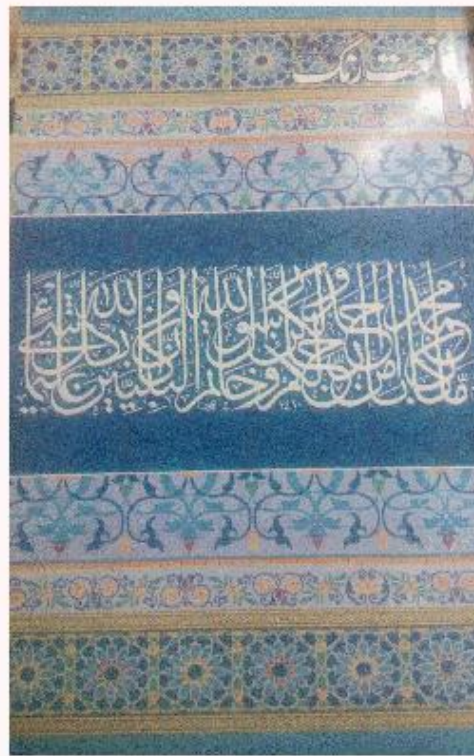 نعت رنگ
ما كان محمد أبا أحد من رجالكم ولكن رسول الله وخاتم النبيين وكان الله بكل شيء عليما